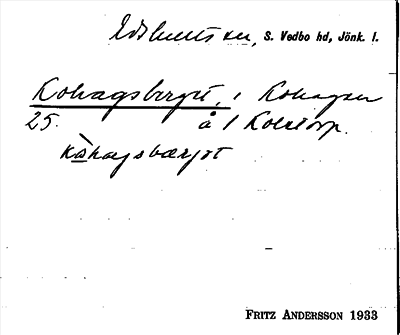 Edshults sn, S. Vedbo hd, Jönk. l.
Kohagsberget, i Kohagen
25. å 1 Kolstorp.
kohagsbærjət
FRITZ ANDERSSON 1933